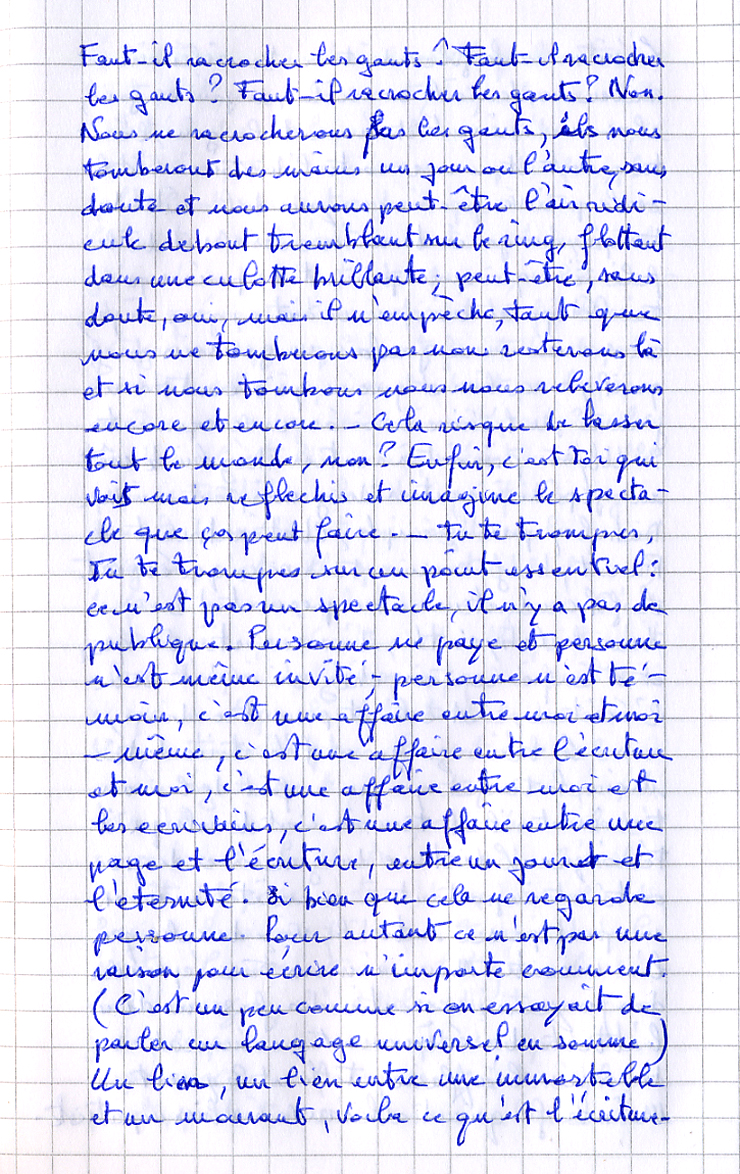 Faut-il racrocher les gants ? Faut-il racrocher
les gants ? Faut-il racrocher les gants ? Non.
Nous ne racrocherons pas les gants, ils nous
tomberont des mains un jour ou l'autre, sans
doute et nous aurons peut-être l'air ridi-
cule debout tremblant sur le ring, flottant
dans une culotte brillante ; peut-être, sans
doute, oui, mais il n'empêche, tant que
nous ne tomberons pas nous resterons là
et si nous tombons nous nous releverons
encore et encore. - Cela risque de lasser
tout le monde, non ? Enfin, c'est toi qui
vois mais reflechis et imagine le specta-
cle que ças peut faire. - Tu te trompes,
Tu te trompes sur un point essentiel :
ce n'est pas un spectacle, il n'y a pas de
publique. Personne ne paye et personne
n'est même invité, personne n'est té-
moin, c'est une affaire entre moi et moi
-même, c'est une affaire entre l'écriture
et moi, c'est une affaire entre moi et
les ecrivains, c'est une affaire entre une
page et l'écriture, entre un jour et
l'eternité. Si bien que cela ne regarde
personne. Pour autant ce n'est pas une
raison pour écrire n'importe comment.
(C'est un peu comme si on essayait de
parler un langage universel en somme)
Un lien, un lien entre une immortelle
et un mourant, voila ce qu'est l'écriture.